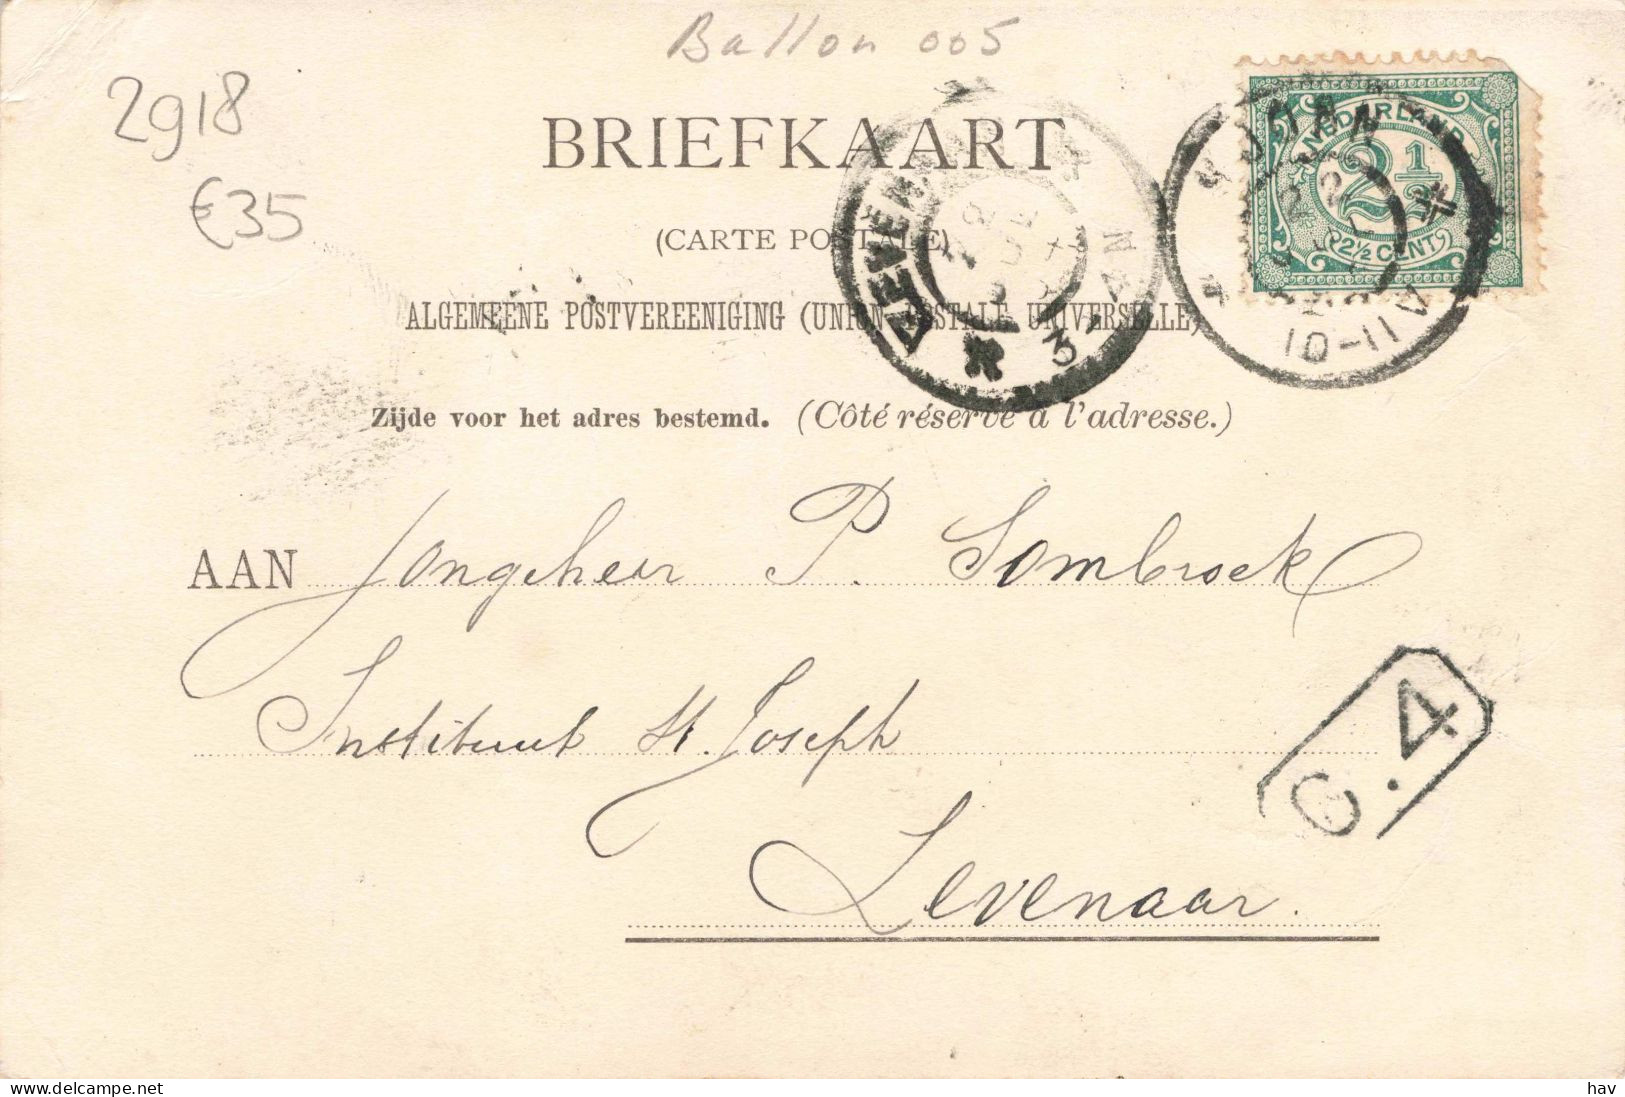 Ballon 005
2918
€35
BRIEFKAART
(CARTE POSTALE)
ALGEMEENE POSTVEREENIGING (UNION POSTALE UNIVERSELLE)
Zijde voor het adres bestemd. (Côté réservé à l'adresse.)
NEDERLAND
2½
2½ CENT
10-11V
3-4N
AAN Jongeheer P. Sombroek
Instituut St. Joseph
Zevenaar.
C.4
www.delcampe.net
hav